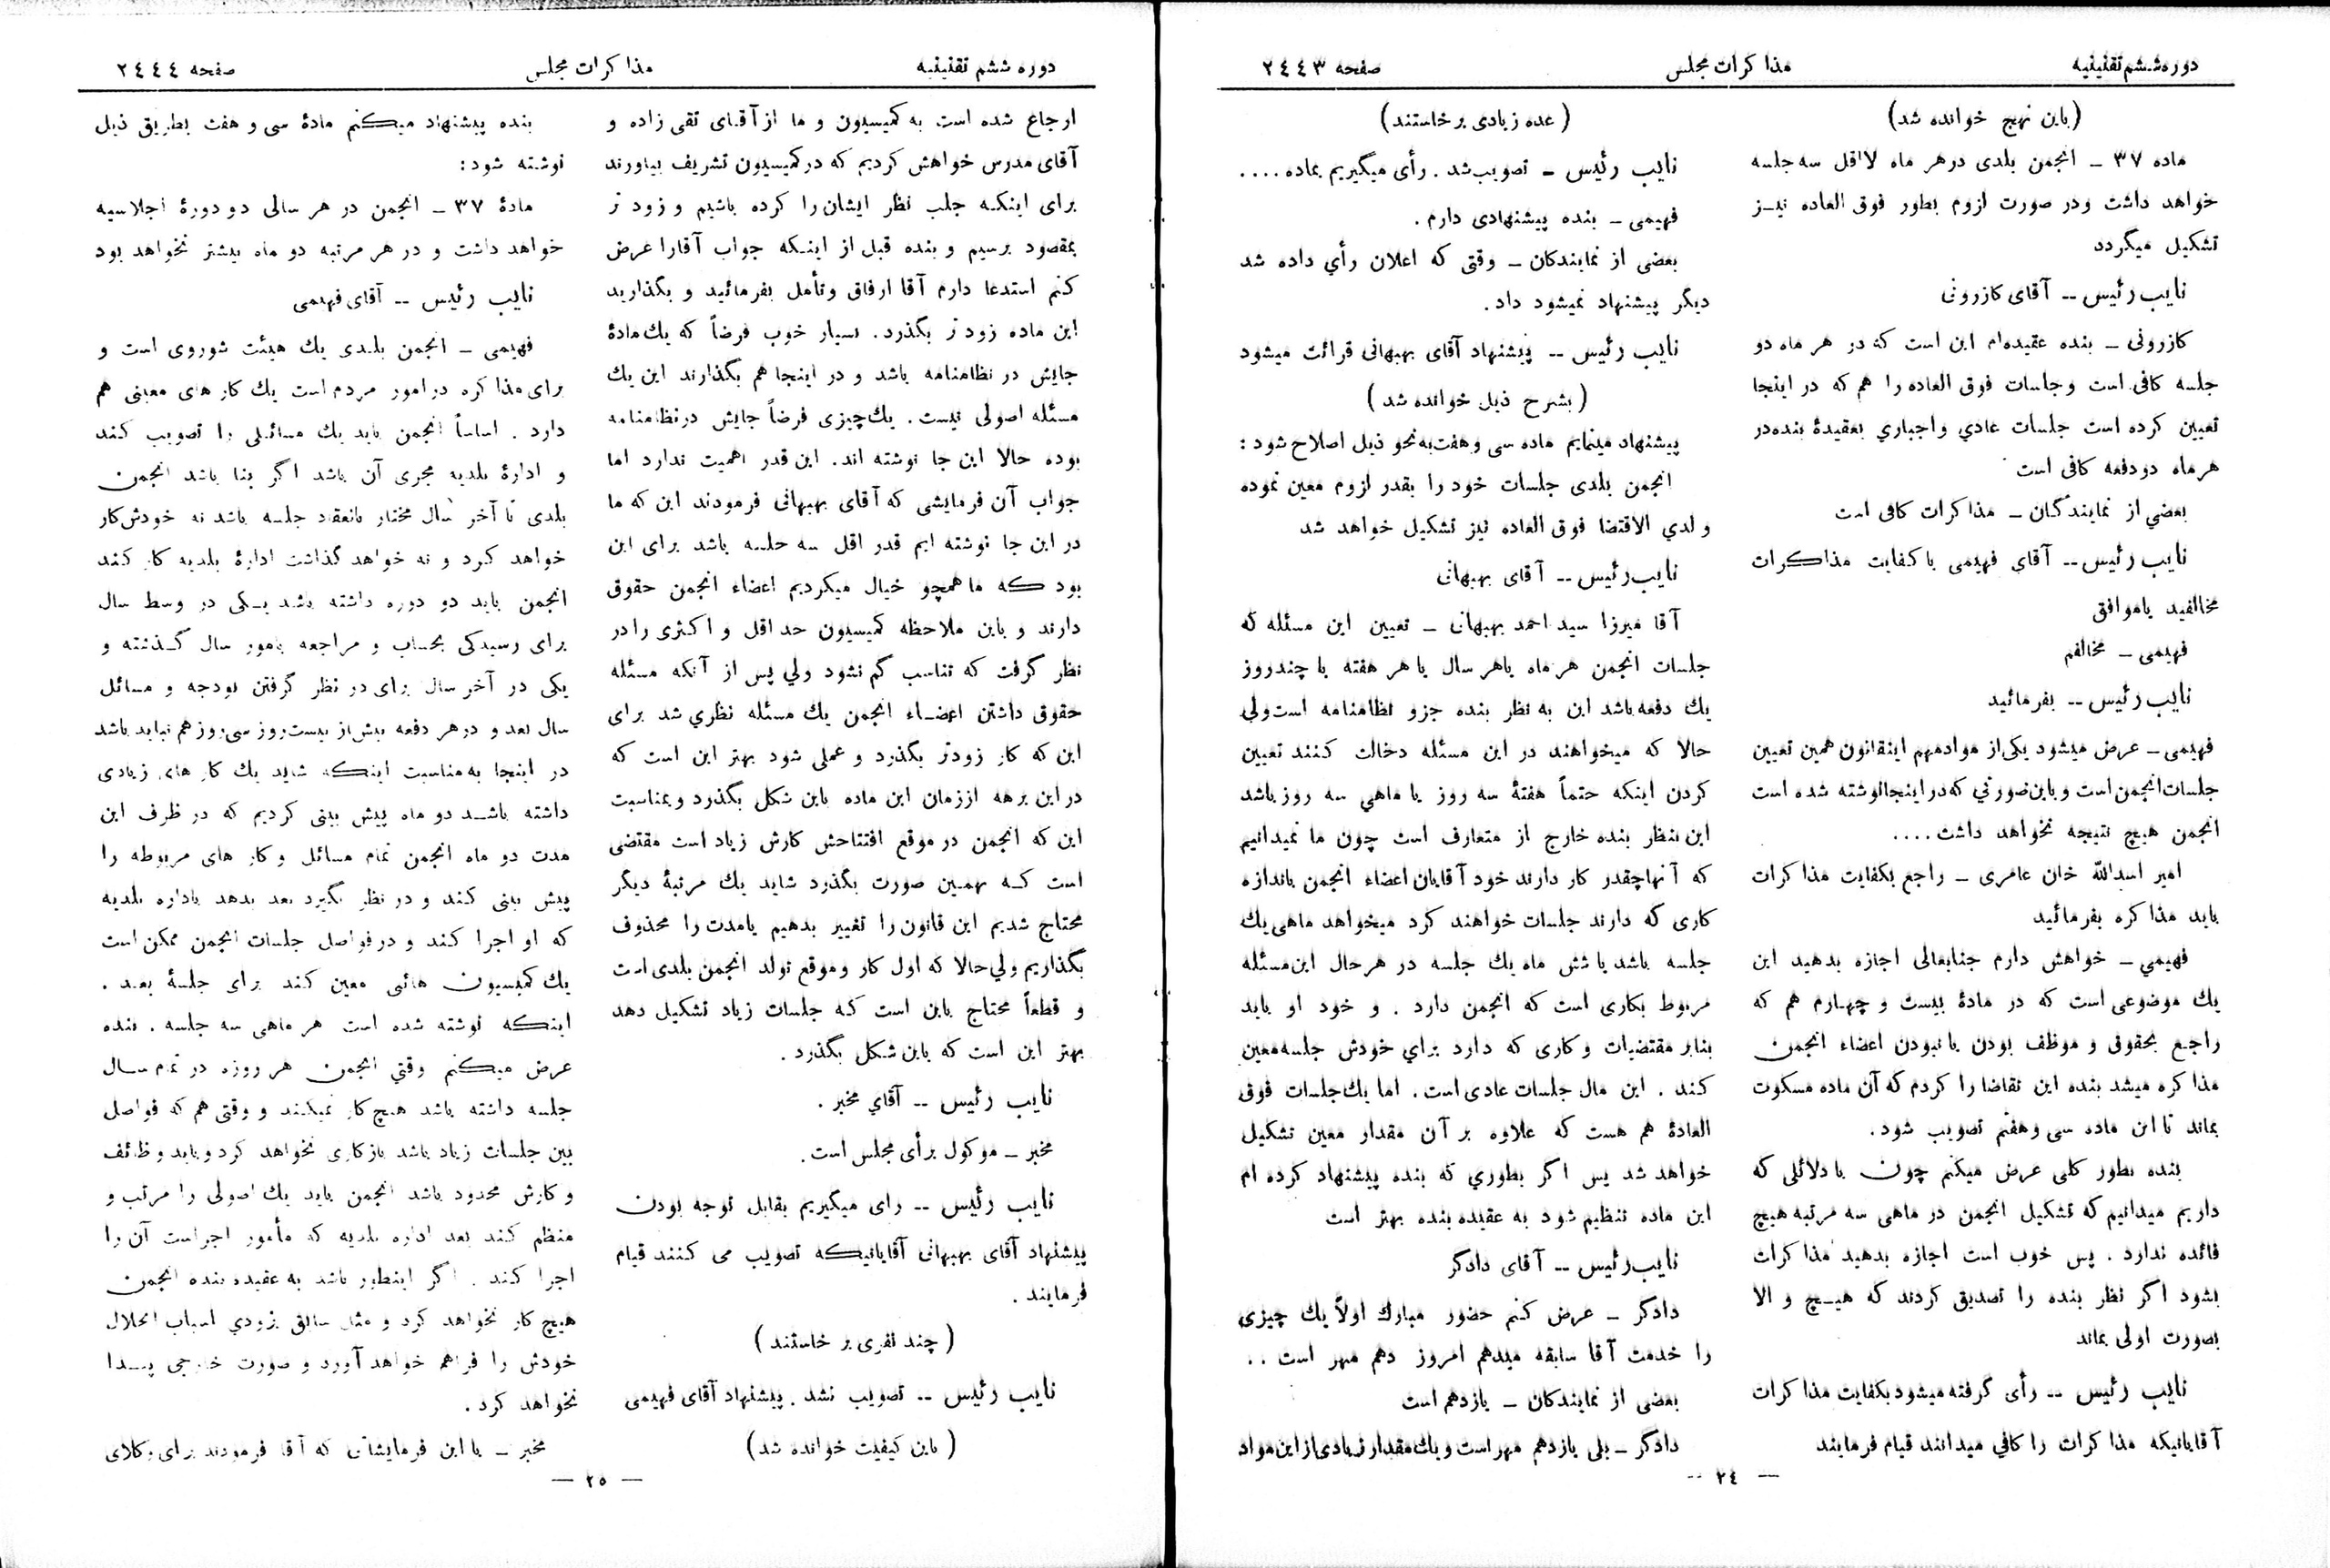 دوره ششم تقنینیه
مذاکرات مجلس
صفحه ۲٤٤۳
(باین نهج خوانده شد)
ماده ۳۷ ــ انجمن بلدی درهر ماه لااقل سه جلسه
خواهد داشت ودر صورت لزوم بطور فوق العاده نیــز
تشکیل میگردد
نایب رئیس ــ آقای کازرونی
کازرونی ــ بنده عقیده‌ام این است که در هر ماه دو
جلسه کافی است وجلسات فوق العاده را هم که در اینجا
تعیین کرده است جلسات عادي واجباري بعقیدهٔ بنده‌در
هرماه دودفعه کافی است
بعضي از نمایندگان ــ مذاکرات کافی است
نایب رئیس ــ آقاي فهیمی با کفایت مذاکرات
مخالفید یاموافق
فهیمی ــ مخالفم
نایب رئیس ــ بفرمائید
فهیمی ــ عرض میشود یکی‌از موادمهم اینقانون همین تعیین
جلسات‌انجمن‌است وباین‌صورتي که‌دراینجانوشته شده است
انجمن هیچ نتیجه نخواهد داشت....
امیر اسدالله خان عامری ــ راجع بکفایت مذاکرات
باید مذاکره بفرمائید
فهیمي ــ خواهش دارم جنابعالی اجازه بدهید این
یك موضوعی است که در مادهٔ بیست و چهارم هم که
راجع بحقوق و موظف بودن یا نبودن اعضاء انجمن
مذاکره میشد بنده این تقاضا را کردم که آن ماده مسکوت
بماند تا این ماده سی وهفتم تصویب شود.
بنده بطور کلی عرض میکنم چون با دلائلی که
داریم میدانیم که تشکیل انجمن در ماهی سه مرتبه هیچ
فائده ندارد . پس خوب است اجازه بدهید مذاکرات
بشود اگر نظر بنده را تصدیق کردند که هیــچ و الا
بصورت اولی بماند
نایب رئیس ــ رأی گرفته میشود بکفایت مذاکرات
آقایانیکه مذاکرات را کافي میدانند قیام فرمایند
(عده زیادی برخاستند)
نایب رئیس ــ تصویب‌شد . رأی میگیریم بماده....
فهیمی ــ بنده پیشنهادی دارم .
بعضی از نمایندکان ــ وقتی که اعلان رأي داده شد
دیگر پیشنهاد نمیشود داد.
نایب رئیس ــ پیشنهاد آقای بهبهانی قرائت میشود
(بشرح ذیل خوانده شد)
پیشنهاد مینمایم ماده سی وهفت‌به‌نحو ذیل اصلاح شود :
انجمن بلدی جلسات خود را بقدر لزوم معین نموده
و لدي الاقتضا فوق العاده نیز تشکیل خواهد شد
نایب‌رئیس ــ آقای بهبهانی
آقا میرزا سید احمد بهبهانی ــ تعیین این مسئله که
جلسات انجمن هرماه یاهر سال یا هر هفته یا چندروز
یك دفعه‌باشد این به نظر بنده جزو نظامنامه است‌ولی
حالا که میخواهند در این مسئله دخالت کنند تعیین
کردن اینکه حتماً هفتهٔ سه روز یا ماهي سه روز باشد
این بنظر بنده خارج از متعارف است چون ما نمیدانیم
که آنهاچقدر کار دارند خود آقایان اعضاء انجمن باندازه
کاری که دارند جلسات خواهند کرد میخواهد ماهی‌یك
جلسه باشد یا شش ماه یك جلسه در هرحال این‌مسئله
مربوط بکاری است که انجمن دارد . و خود او باید
بنابر مقتضیات وکاری که دارد براي خودش جلسه‌معین
کند . این مال جلسات عادی است. اما یك‌جلسات فوق
العادهٔ هم هست که علاوه بر آن مقدار معین تشکیل
خواهد شد پس اگر بطوري که بنده پیشنهاد کرده ام
این ماده تنظیم شود به عقیده بنده بهتر است
نایب‌رئیس ــ آقای دادگر
دادگر ــ عرض کنم حضور مبارك اولاً یك چیزی
را خدمت آقا سابقه میدهم امروز دهم مهر است ..
بعضی از نمایندکان ــ یازدهم است
دادگر ــ بلی یازدهم مهراست ویك‌مقدارزیادی‌ازاین‌مواد
— ۲٤ —
دوره ششم تقنینیه
مذاکرات مجلس
صفحه ۲٤٤٤
ارجاع شده است به کمیسیون و ما از آقای تقی زاده و
آقای مدرس خواهش کردیم که درکمیسیون تشریف بیاورند
برای اینکه جلب نظر ایشان را کرده باشیم و زود تر
بمقصود برسیم و بنده قبل از اینـکه جواب آقارا عرض
کنم استدعا دارم آقا ارفاق وتأمل بفرمائید و بگذارید
این ماده زود تر بگذرد. بسیار خوب فرضاً که یك‌مادهٔ
جایش در نظامنامه باشد و در اینجا هم بگذارند این یك
مسئله اصولی نیست. یك‌چیزی فرضاً جایش درنظامنامه
بوده حالا این جا نوشته اند. این قدر اهمیت ندارد اما
جواب آن فرمایشی که آقای بهبهانی فرمودند این که ما
در این جا نوشته ایم قدر اقل سه جلسه باشد برای این
بود که ماهمچو خیال میکردیم اعضاء انجمن حقوق
دارند و باین ملاحظه کمیسیون حد اقل و اکثری را در
نظر گرفت که تناسب گم نشود ولي پس از آنکه مسئله
حقوق داشتن اعضــاء انجمن یك مسئله نظري شد برای
این که کار زودتر بگذرد و عملی شود بهتر این است که
در این برهه اززمان این ماده باین شکل بگذرد وبمناسبت
این که انجمن در موقع افتتاحش کارش زیاد است مقتضی
است کــه بهمین صورت بگذرد شاید یك مرتبهٔ دیگر
محتاج شدیم این قانون را تغییر بدهیم یامدت را محذوف
بگذاریم ولي‌حالا که اول کار وموقع تولد انجمن بلدی است
و قطعاً محتاج باین است که جلسات زیاد تشکیل دهد
بهتر این است که باین شکل بگذرد .
نایب رئیس ــ آقاي مخبر .
مخبر ــ موکول برأی مجلس است.
نایب رئیس ــ رای میگیریم بقابل توجه بودن
پیشنهاد آقای بهبهانی آقایانیکه تصویب می کنند قیام
فرمایند .
(چند نفری بر خاستند)
نایب رئیس ــ تصویب نشد . پیشنهاد آقای فهیمی
(باین کیفیت خوانده شد)
بنده پیشنهاد میکنم مادهٔ سی و هفت بطریق ذیل
نوشته شود :
مادهٔ ۳۷ ــ انجمن در هر سالی دو دورهٔ اجلاسیه
خواهد داشت و در هر مرتبه دو ماه بیشتر نخواهد بود
نایب رئیس ــ آقای فهیمی
فهیمی ــ انجمن بلدی یك هیئت شوروی است و
برای مذاکره در امور مردم است یك کار های معینی هم
دارد . اساساً انجمن باید یك مسائلی را تصویب کند
و ادارهٔ بلدیه مجری آن باشد اگر بنا باشد انجمن
بلدی تا آخر سال مختار بانعقاد جلسه باشد نه خودش‌کار
خواهد کرد و نه خواهد گذاشت ادارهٔ بلدیه کار کند
انجمن باید دو دوره داشته باشد یکی در وسط سال
برای رسیدگی بحساب و مراجعه بامور سال گـذشته و
یکی در آخر سال برای در نظر گرفتن بودجه و مسائل
سال بعد و درهر دفعه بیش‌از بیست‌روز سی‌روزهم نباید باشد
در اینجا به‌مناسبت اینکه شاید یك کار های زیادی
داشته باشـد دو ماه پیش بینی کردیم که در ظرف این
مدت دو ماه انجمن تمام مسائل وکار های مربوطه را
پیش بینی کند و در نظر بگیرد بعد بدهد باداره بلدیه
که او اجرا کند و درفواصل جلسات انجمن ممکن است
یك کمیسیون هائی معین کند برای جلسهٔ بعد .
اینکه نوشته شده است هر ماهی سه جلسه . بنده
عرض میکنم وقتي انجمن هر روزه در تمام سال
جلسه داشته باشد هیچ‌کار نمیکند و وقتی هم که فواصل
بین جلسات زیاد باشد بازکاری نخواهد کرد وباید وظائف
وکارش محدود باشد انجمن باید یك اصولی را مرتب و
منظم کند بعد اداره بلدیه که مأمور اجراست آن را
اجرا کند . اگر اینطور باشد به عقیده بنده انجمن
هیچ کار نخواهد کرد و مثل سابق بزودي اسباب انحلال
خودش را فراهم خواهد آورد و صورت خارجی پیــدا
نخواهد کرد .
مخبر ــ با این فرمایشاتی که آقا فرمودند برای وکلای
— ۲٥ —